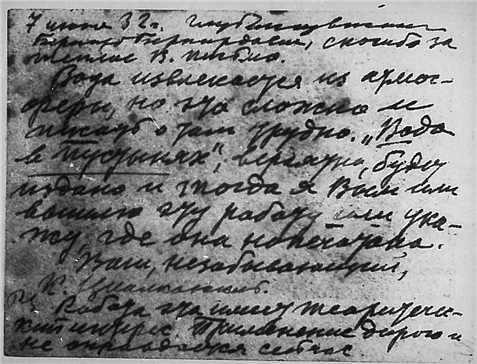 7 июня 32 г. Глубокоуважаемый
Бернард Бернардович, спасибо за
теплое В. письмо.
Вода извлекается из атмос-
феры, но это сложно и
писать о том трудно. „Вода
в Пустынях“, вероятно, будет
издано и тогда я Вам или
вышлю эту работу или ука-
жу, где она напечатана.
Ваш, незабывающий,
К. Циолковский
Работа эта имеет теоретичес-
кий интерес. Применение дорого и
не оправдается сейчас